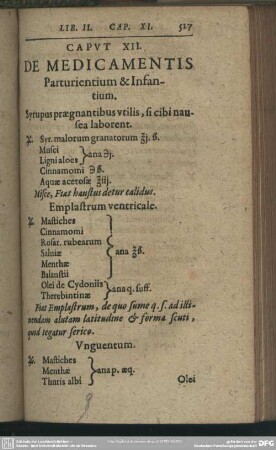 LIB. II. CAP. XI. 527
CAPVT XII.
DE MEDICAMENTIS
Parturientium & Infan-
tium.
Syrupus prægnantibus vtilis, si cibi nau-
sea laborent.
℞. Syr. malorum granatorum ℥j. ß.
Musci
Ligni aloës } ana ℈j.
Cinnamomi ℈ ß.
Aquæ acetosæ ℥iij.
Misce, Fiat haustus detur calidus.
Emplastrum ventricale.
℞. Mastiches
Cinnamomi
Rosar. rubearum
Salviæ
Menthæ
Balaustii } ana ℥ß.
Olei de Cydoniis
Therebintinæ } ana q. suff.
Fiat Emplastrum, de quo sume q. s. ad illi-
nendam alutam latitudine & forma scuti,
quod tegatur serico.
Vnguentum.
℞. Mastiches
Menthæ
Thuris albi } ana p. æq.
Olei